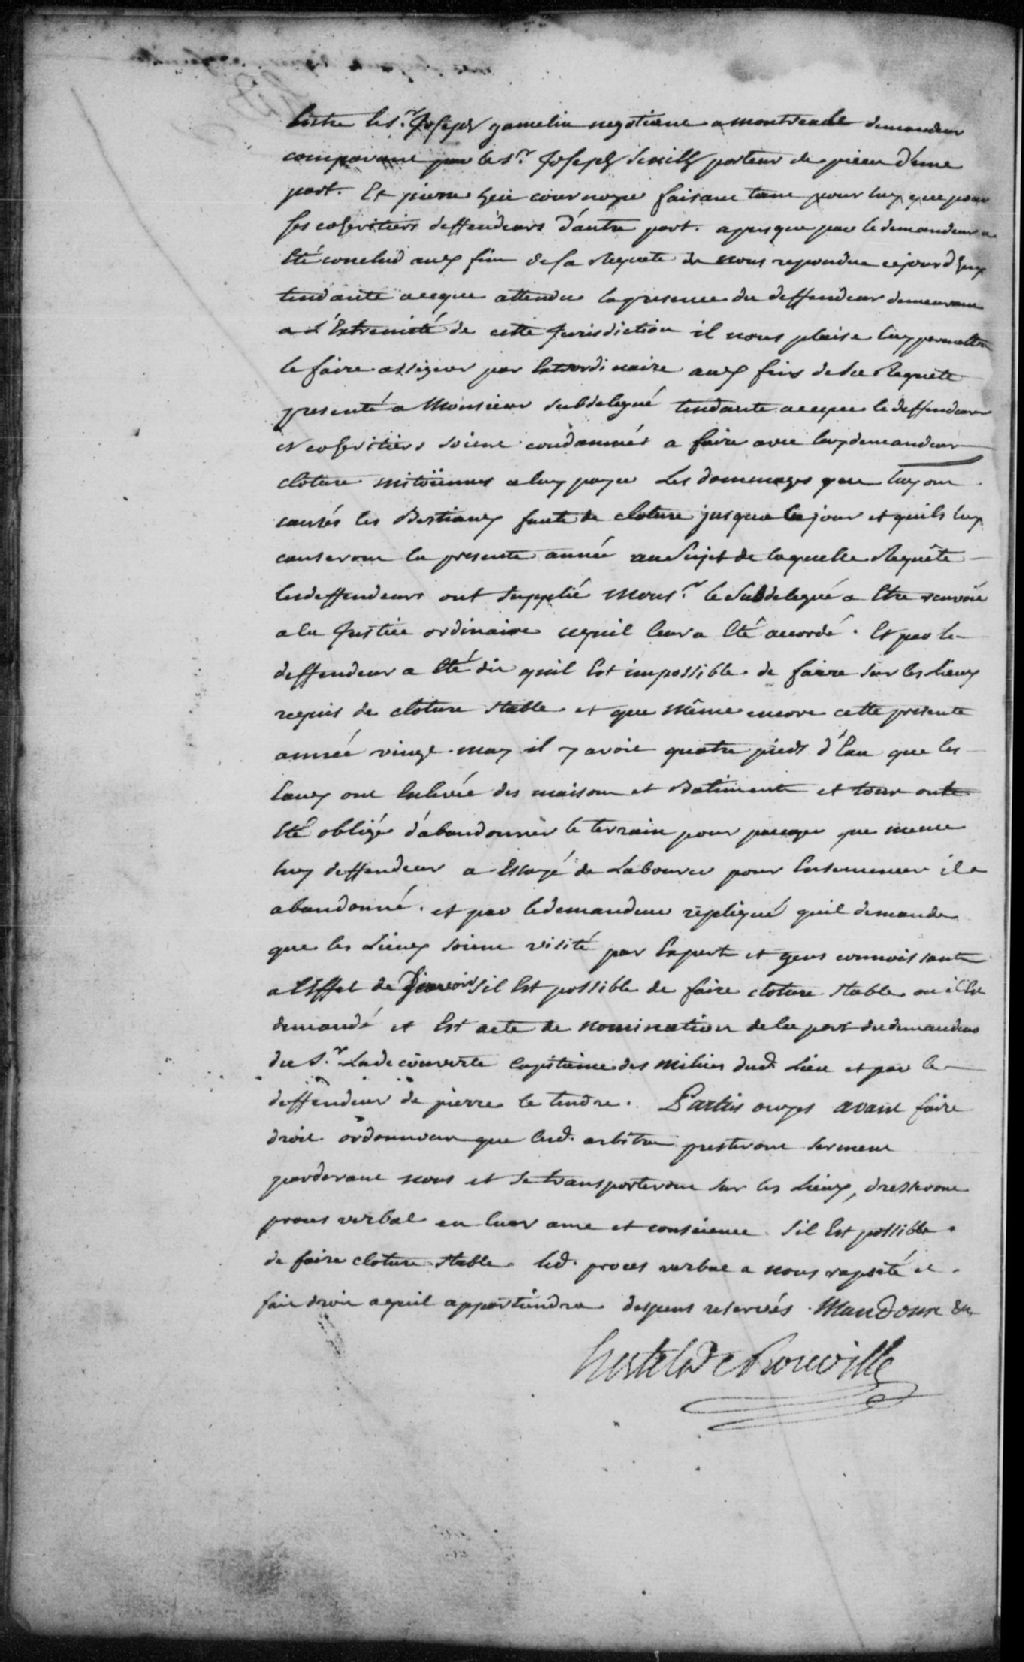 Entre le s.r Joseph gamelin negotiant a montreal demandeur
comparant par le s.r Joseph porteur de pieces d'une
part. Et pierre hué cournoyé faisant tant pour luy que pour
ses coheritiers deffendeurs d'autre part. apresque par le demandeur a
Eté conclud aux fins de sa Requete de nous repondue cejourd'huy
tendante aceque attendu la presence du deffendeur demeurant
a L'Extremité de cette Jurisdiction il nous plaise luy permettre
le faire assigner par Extraordinaire aux fins de sa Requete
presenté a Monsieur subdelegué tendante aceque le deffendeur
et coheritiers soient condamnés a faire avec luy demandeur
cloture mitoïennes a luy payer Les dommages que luy ont
causés les Bestiaux faute de cloture jusqua ce jour et quils luy
causeront la presente année au Sujet de laquelle Requête
lesdeffendeurs ont Supplié Mons.r le Subdelegué a Etre renvoié
a la Justice ordinaire cequil leur a Eté accordé. Et par le
deffendeur a Eté dit quil Est impossible de faire sur les lieux
requis de cloture stable et que même encore cette presente
année vingt may il y avoit quatre pieds d'Eau que les
Eaux ont Enlevée des maisons et Batiments et tous ont
Eté obligé d'abandonner le terrain pour pacager que meme
luy deffendeur a Essayé de Labourer pour Ensemencer il a
abandonné. et par ledemandeur repliqué quil demande
que les Lieux soient visité par Expert et gens connoissants
a L'Effet de sil Est possible de faire cloture stable ou il Est
demandé et Est acte de nomination de la part du demandeur
du S.r Ladecouverte capitaine des milices dud. Lieu et par le
deffendeur de pierre le tendre. Parties ouyes avant faire
droit ordonnons que lesd. arbitres presteront serment
pardevant nous et se transporteront sur les Lieux, dresseront
proces verbal en leur ame et conscience sil Est possible
de faire cloture stable led. proces verbal a nous raporté et
fait droit aquil appartiendra depens reservés. Mandons &c
hertel De Rouville